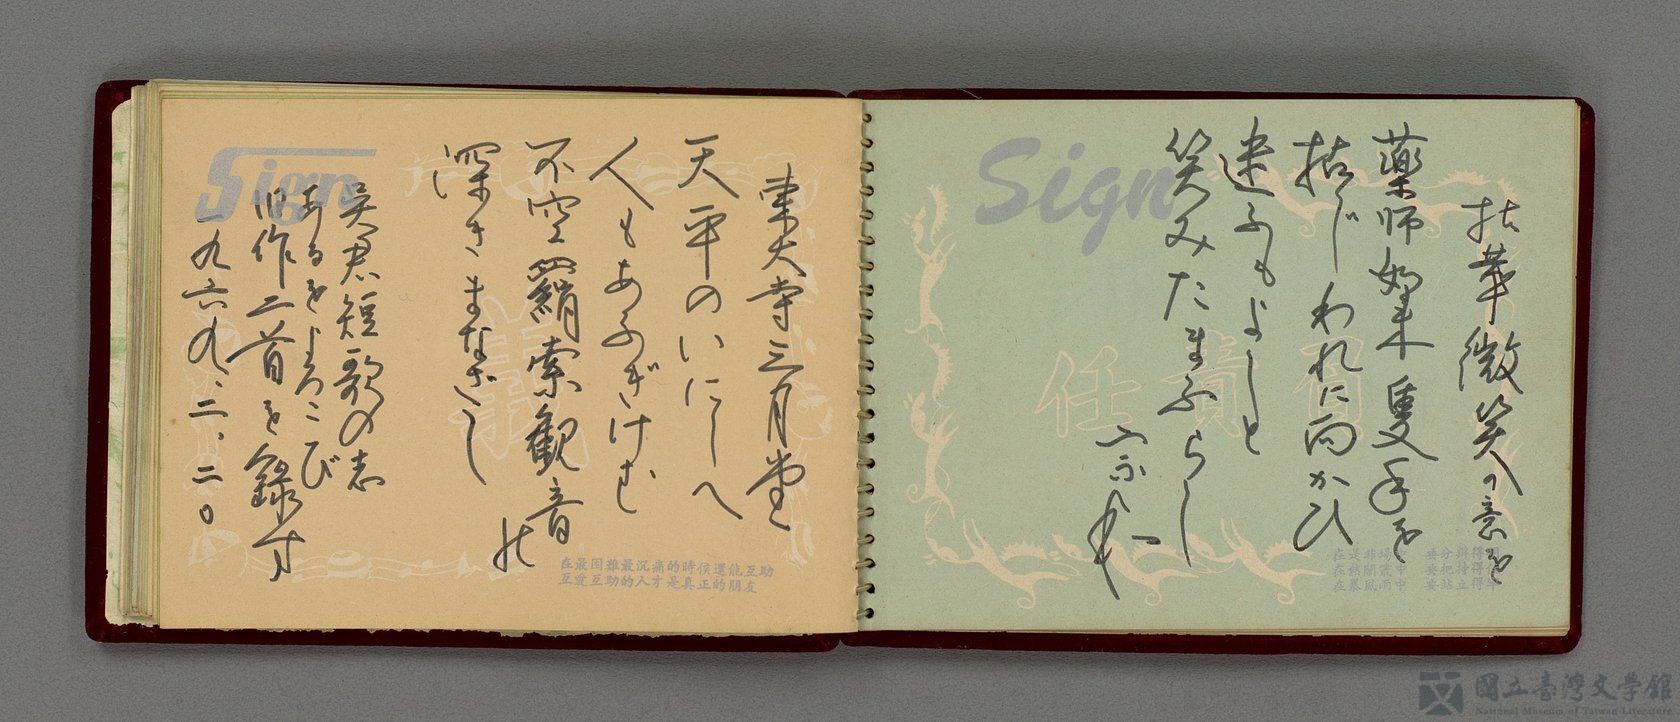 拈華微笑の意を
薬師如来隻手を
拈じわれに向かひ
迷ふもよしと
笑みたまふらし
Sign
有責任
東大寺三月堂
天平のいにしへ
人もあふぎけむ
不空羂索観音の
深きまなざし
呉君短歌の志
あるをよろこび
旧作二首を録す
一九六九、二、二〇
Sign
義
在最困難最沉痛的時侯還能互助
互愛互助的人才是真正的朋友
國立臺灣文學館
National Museum of Taiwan Literature